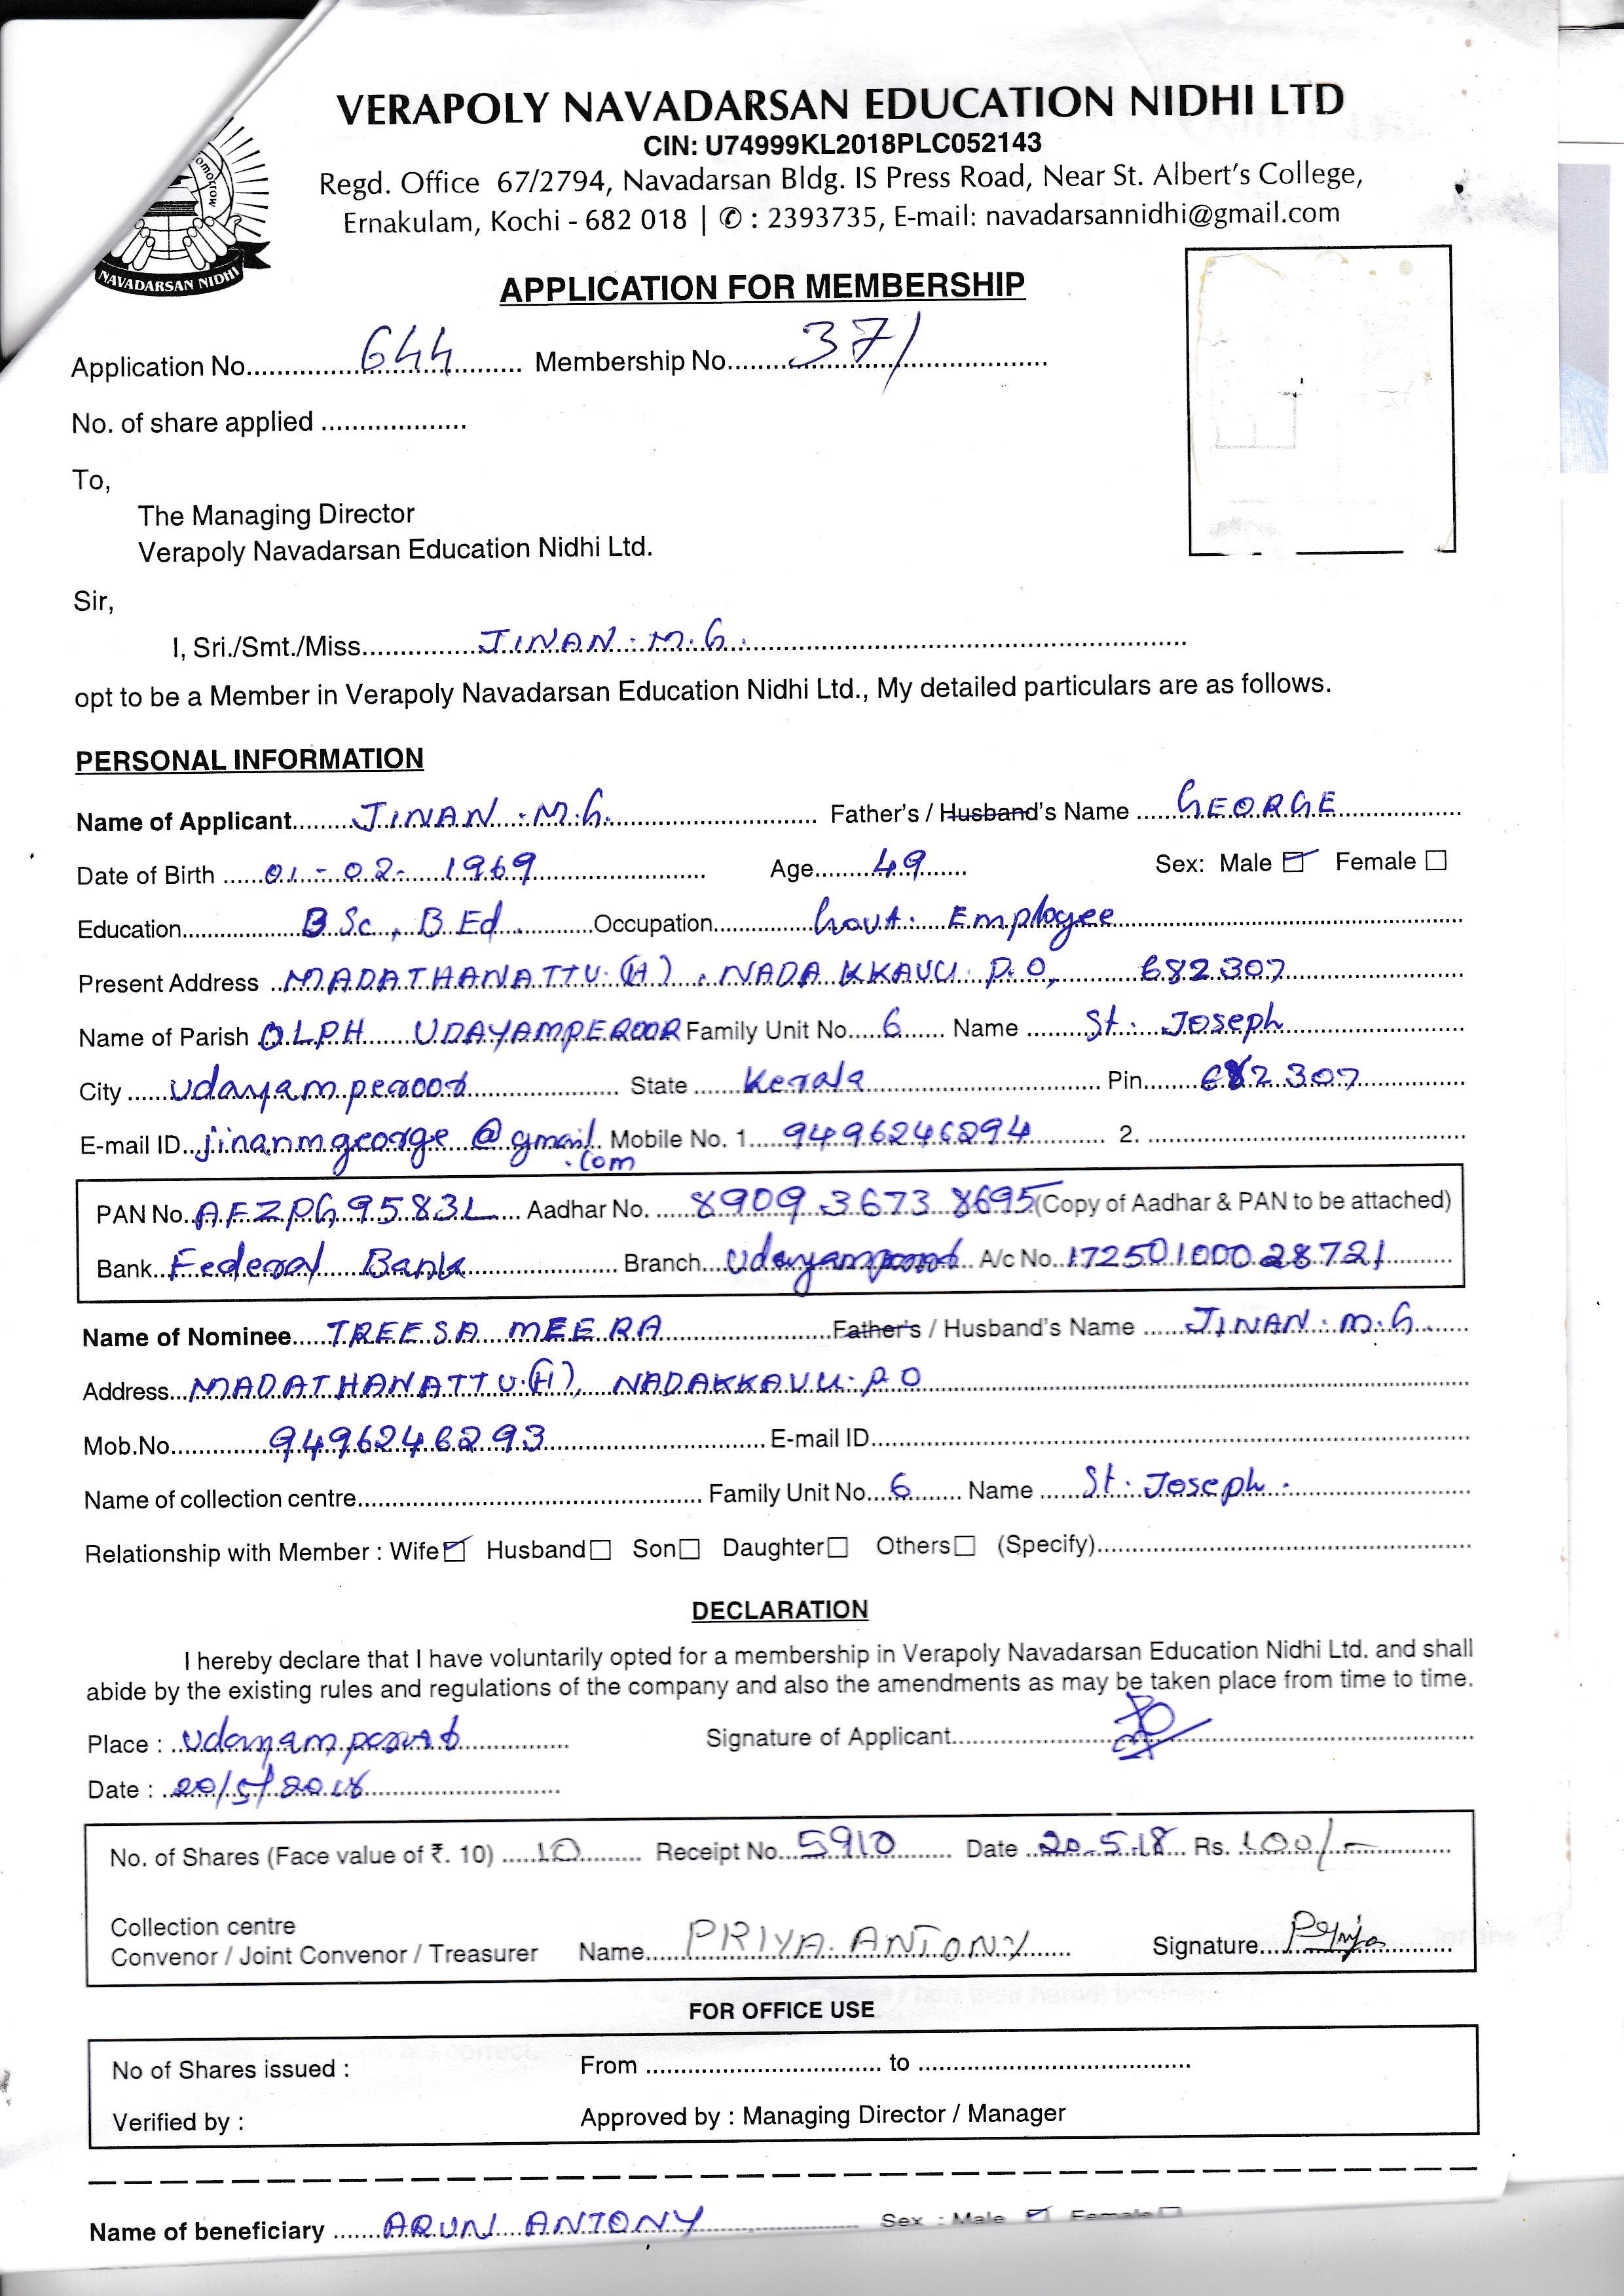 VERAPOLY NAVADARSAN EDUCATION NIDHI LTD
CIN: U74999KL2018PLC052143
Regd. Office 67/2794, Navadarsan Bldg. IS Press Road, Near St. Albert's College,
Ernakulam, Kochi - 682 018 | ✆ : 2393735, E-mail: navadarsannidhi@gmail.com
omorrow
NAVADARSAN NIDHI
APPLICATION FOR MEMBERSHIP
Application No. 644 Membership No. 371
No. of share applied
To,
The Managing Director
Verapoly Navadarsan Education Nidhi Ltd.
Sir,
I, Sri./Smt./Miss. JINAN . M.G.
opt to be a Member in Verapoly Navadarsan Education Nidhi Ltd., My detailed particulars are as follows.
PERSONAL INFORMATION
Name of Applicant JINAN . M.G. Father's / Husband's Name GEORGE
Date of Birth 01 - 02 - 1969 Age 49 Sex: Male ☑ Female ☐
Education B Sc , B Ed . Occupation Govt. Employee
Present Address MADATHANATTU (H) , NADAKKAVU P.O, 682307
Name of Parish OLPH UDAYAMPEROOR Family Unit No. 6 Name St. Joseph
City Udayamperoor State Kerala Pin 682307
E-mail ID jinanmgeorge @ gmail Mobile No. 1. 9496246294 2.
.com
PAN No. AFZPG9583L Aadhar No. 8909 3673 8695 (Copy of Aadhar & PAN to be attached)
Bank Federal Bank Branch Udayamperoor A/c No. 17250100028721
Name of Nominee TREESA MEERA Father's / Husband's Name JINAN . M.G.
Address MADATHANATTU (H), NADAKKAVU P.O
Mob.No. 9496246293 E-mail ID
Name of collection centre Family Unit No. 6 Name St. Joseph .
Relationship with Member : Wife ☑ Husband ☐ Son ☐ Daughter ☐ Others ☐ (Specify)
DECLARATION
I hereby declare that I have voluntarily opted for a membership in Verapoly Navadarsan Education Nidhi Ltd. and shall
abide by the existing rules and regulations of the company and also the amendments as may be taken place from time to time.
Place : Udayamperoor Signature of Applicant
Date : 20/5/2018
No. of Shares (Face value of ₹. 10) 10 Receipt No. 5910 Date 20.5.18 Rs. 100/-
Collection centre
Convenor / Joint Convenor / Treasurer Name PRIYA ANTONY Signature Priya
FOR OFFICE USE
No of Shares issued : From to
Verified by : Approved by : Managing Director / Manager
Name of beneficiary ARUN ANTONY Sex : Male ☑ Female ☐